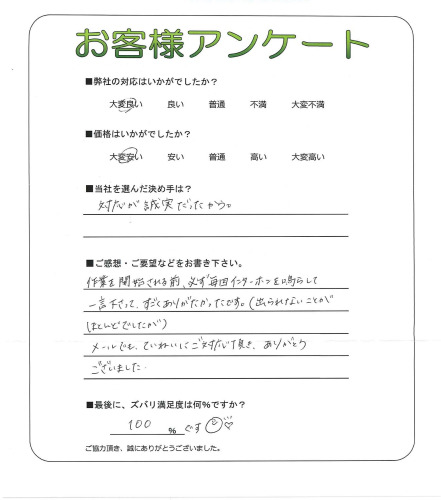 お客様アンケート
■弊社の対応はいかがでしたか？
大変良い 良い 普通 不満 大変不満
■価格はいかがでしたか？
大変安い 安い 普通 高い 大変高い
■当社を選んだ決め手は？
対応が誠実だったから。
■ご感想・ご要望などをお書き下さい。
作業を開始される前、必ず毎回インターホンを鳴らして
一言下さって、すごくありがたかったです。(出られないことが
ほとんどでしたが)
メールでも、ていねいにご対応頂き、ありがとう
ございました.
■最後に、ズバリ満足度は何％ですか？
100 ％ です
ご協力頂き、誠にありがとうございました。